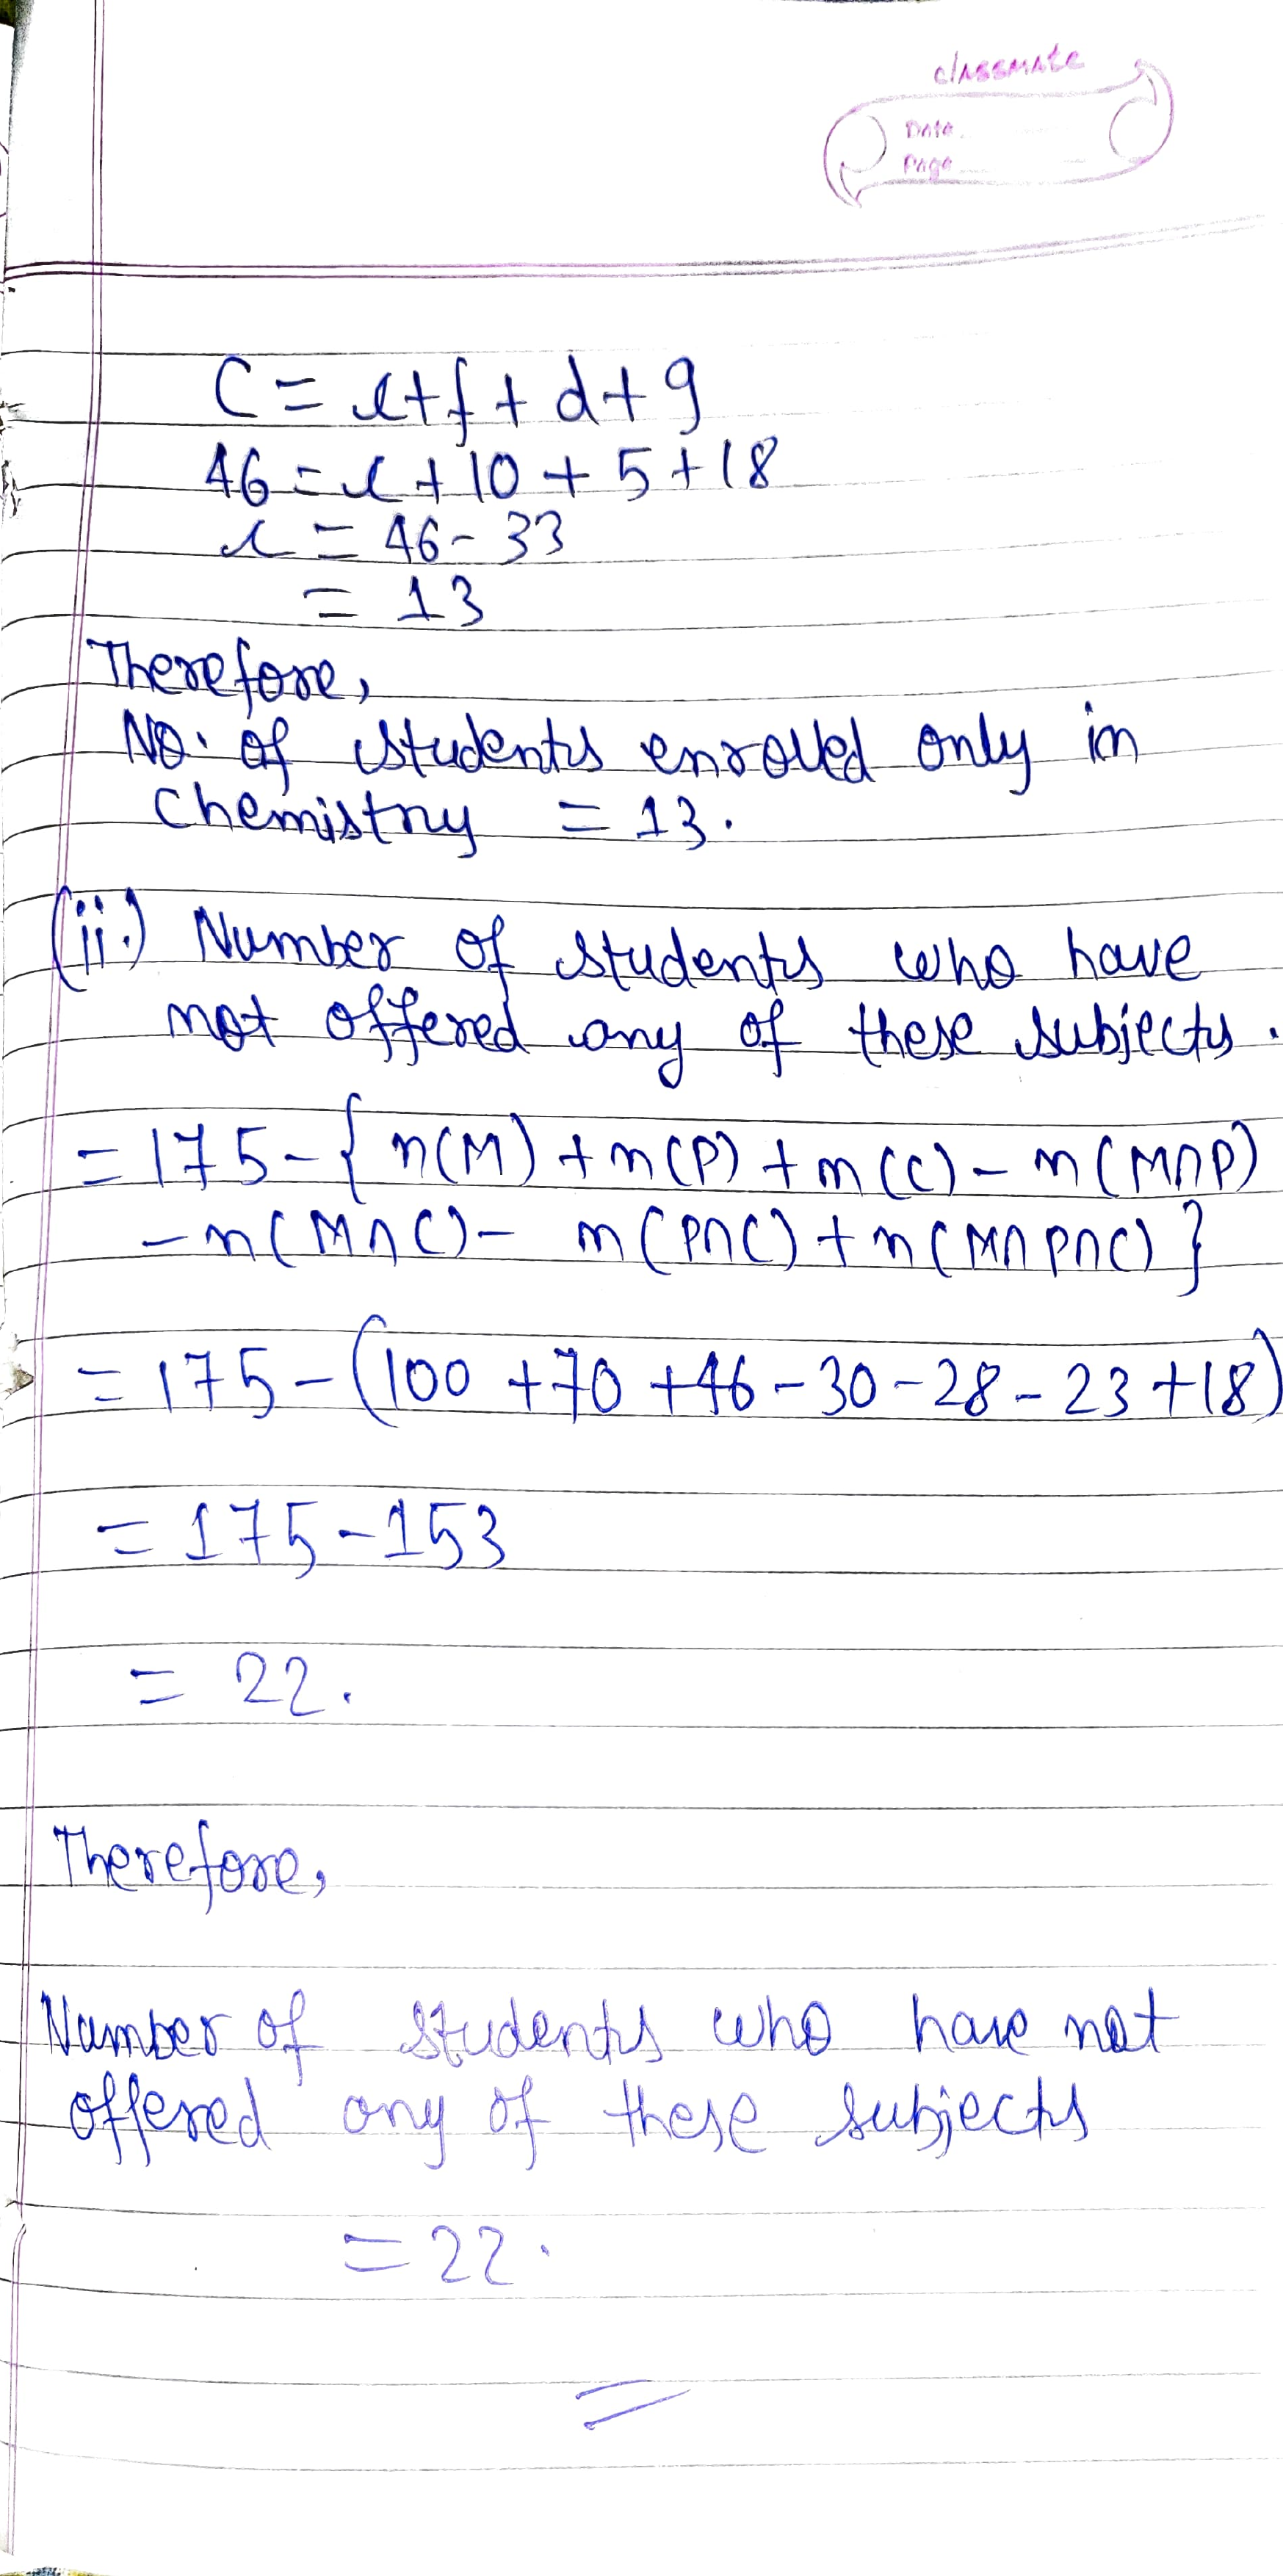 classmate
Date
Page
C = x + f + d + g
46 = x + 10 + 5 + 18
x = 46 - 33
= 13
Therefore,
No. of students enrolled only in
chemistry = 13.
(ii.) Number of students who have
not offered any of these subjects.
= 175 - { n(M) + n(P) + n(C) - n(M∩P)
- n(M∩C) - n(P∩C) + n(M∩P∩C) }
= 175 - (100 + 70 + 46 - 30 - 28 - 23 + 18)
= 175 - 153
= 22.
Therefore,
Number of students who have not
offered any of these subjects
= 22.